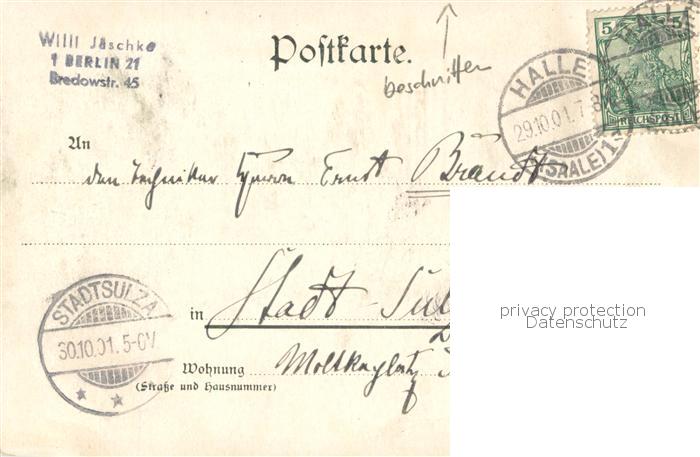 Willi Jäschke
1 BERLIN 21
Bredowstr. 45
Postkarte.
beschnitten
HALLE
29.10.01. 7-8
(SAALE) 1
5 5
REICHSPOST
An
den Techniker Herrn Ernst Brandt
in Stadt-Sul
STADTSULZA
30.10.01. 5-6V
Wohnung
(Straße und Hausnummer)
privacy protection
Datenschutz